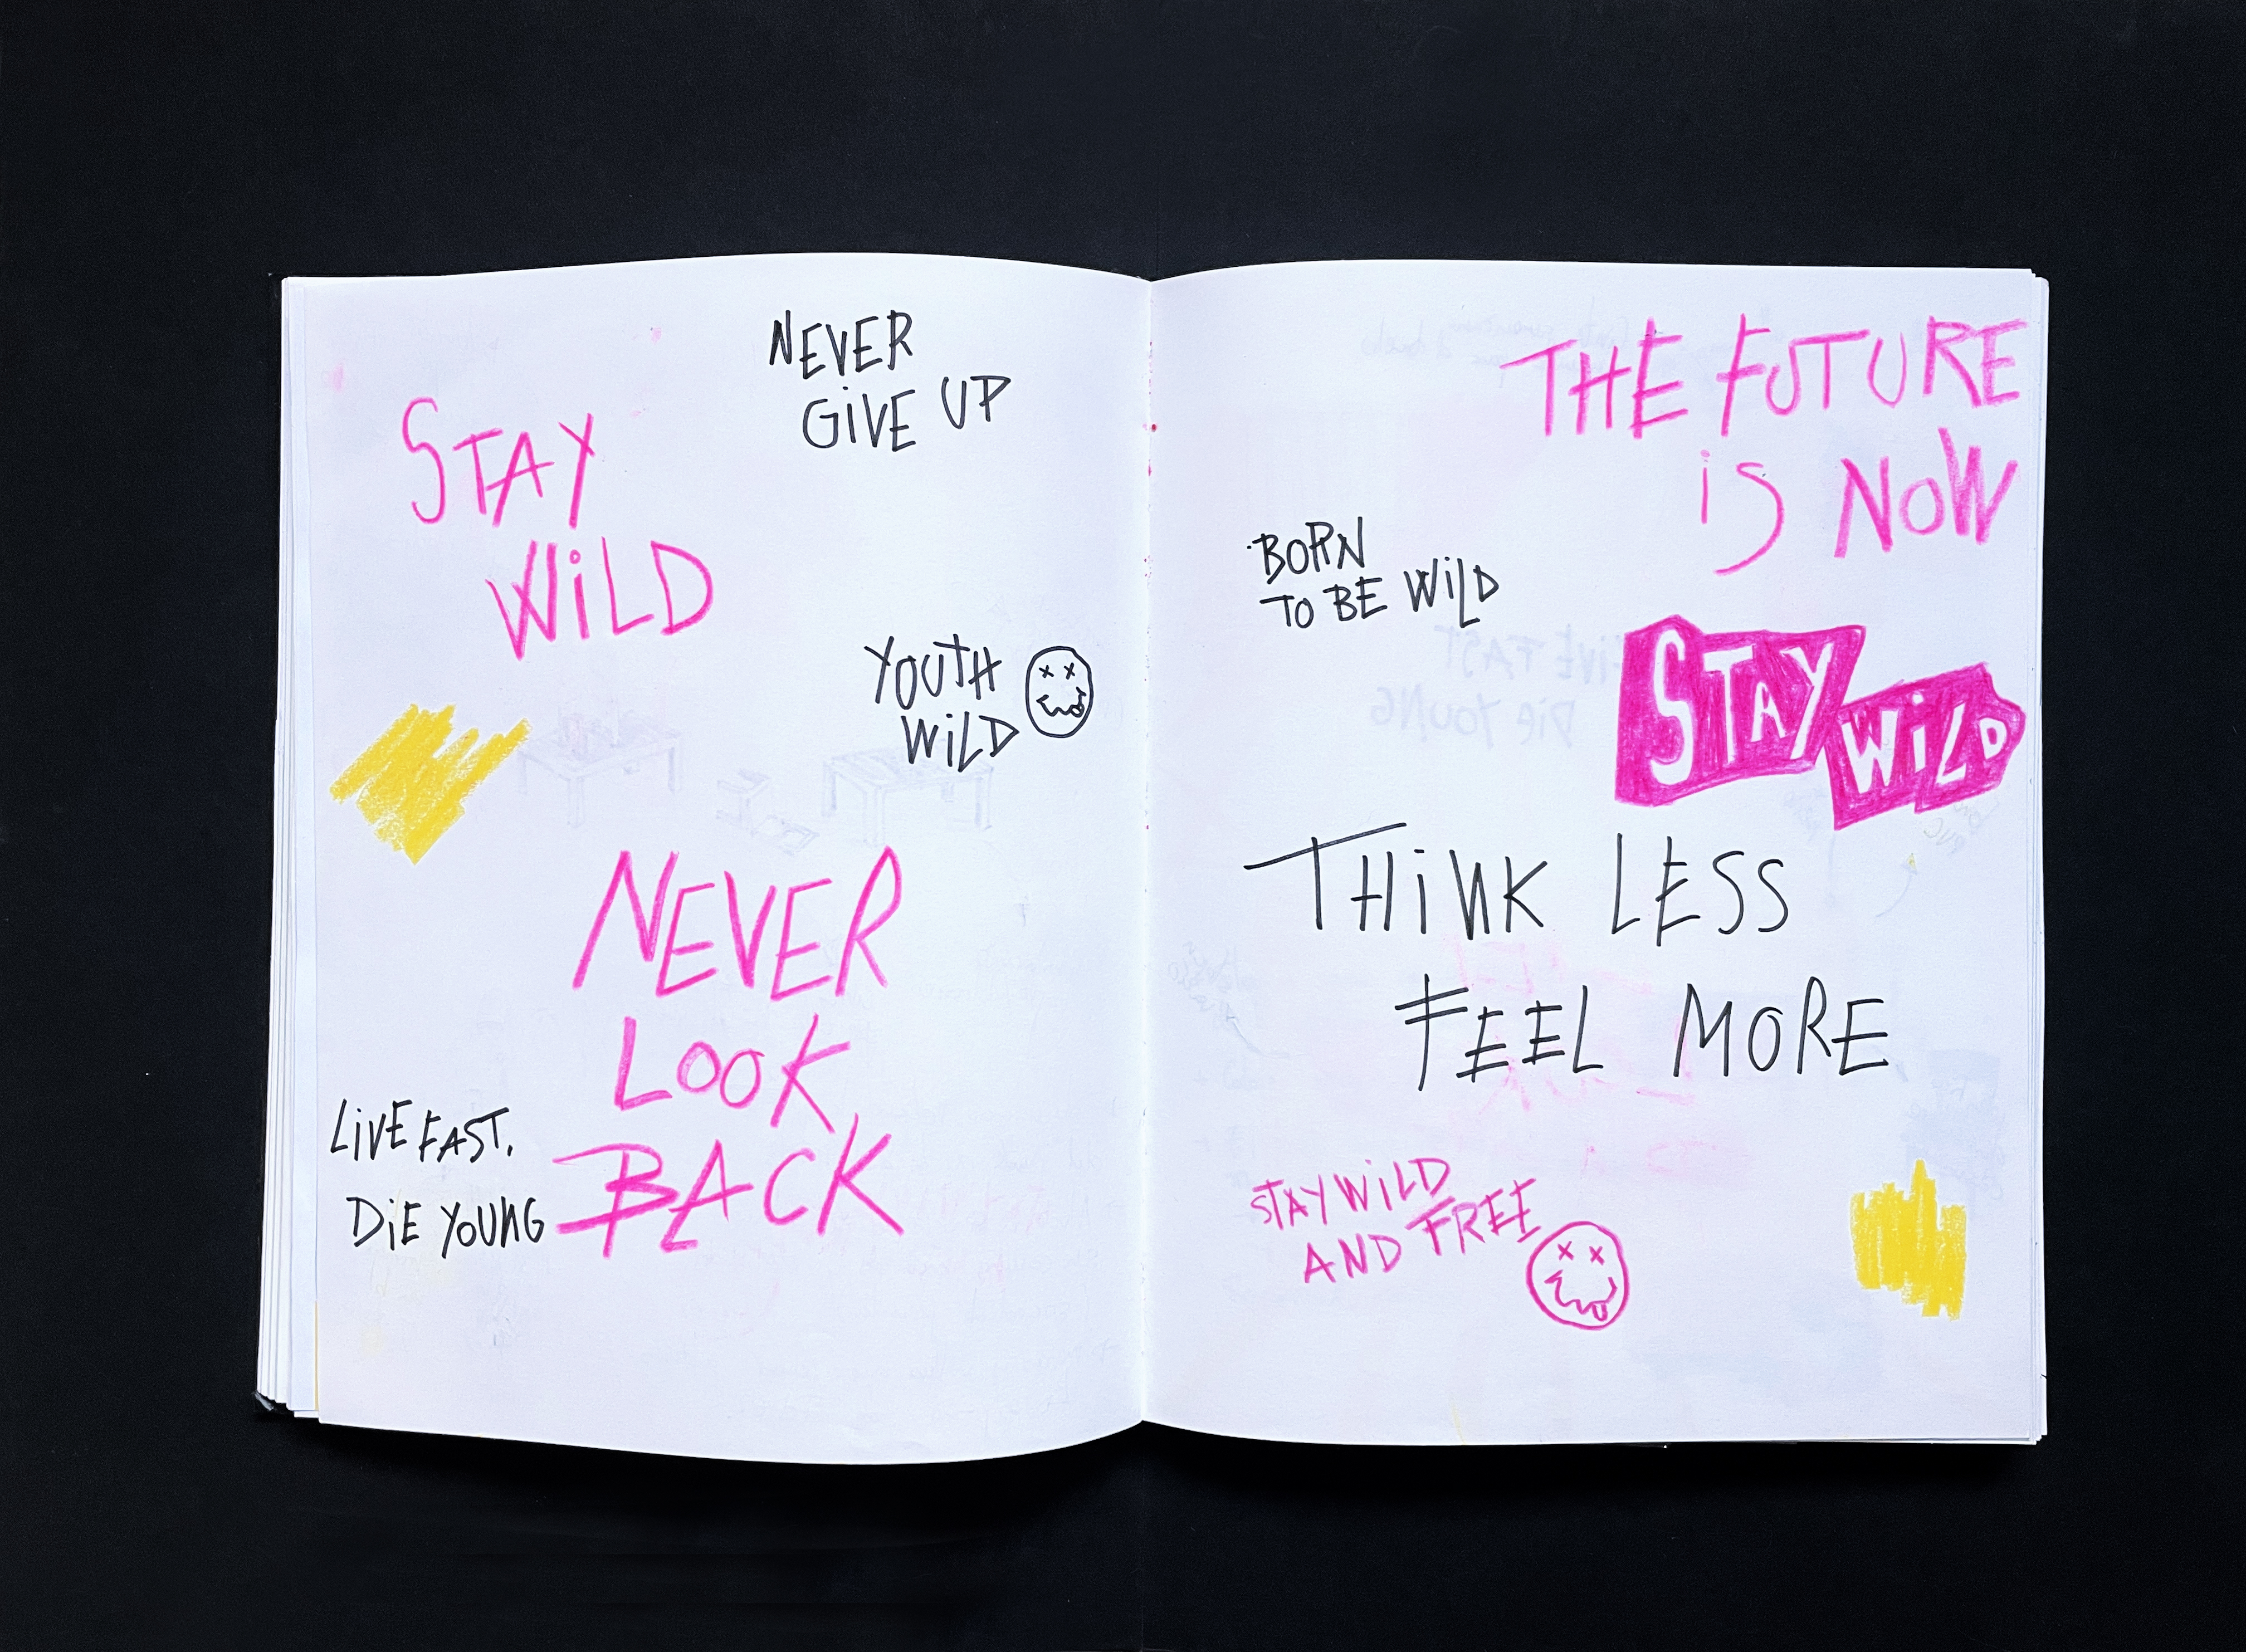 NEVER
GiVE UP
STAY
WiLD
YOUTH
WiLD
NEVER
LOOK
BACK
LiVE FAST.
DiE YOUNG
THE FUTURE
iS NOW
BORN
TO BE WiLD
STAY
WiLD
THiNK LESS
FEEL MORE
STAY WiLD
AND FREE